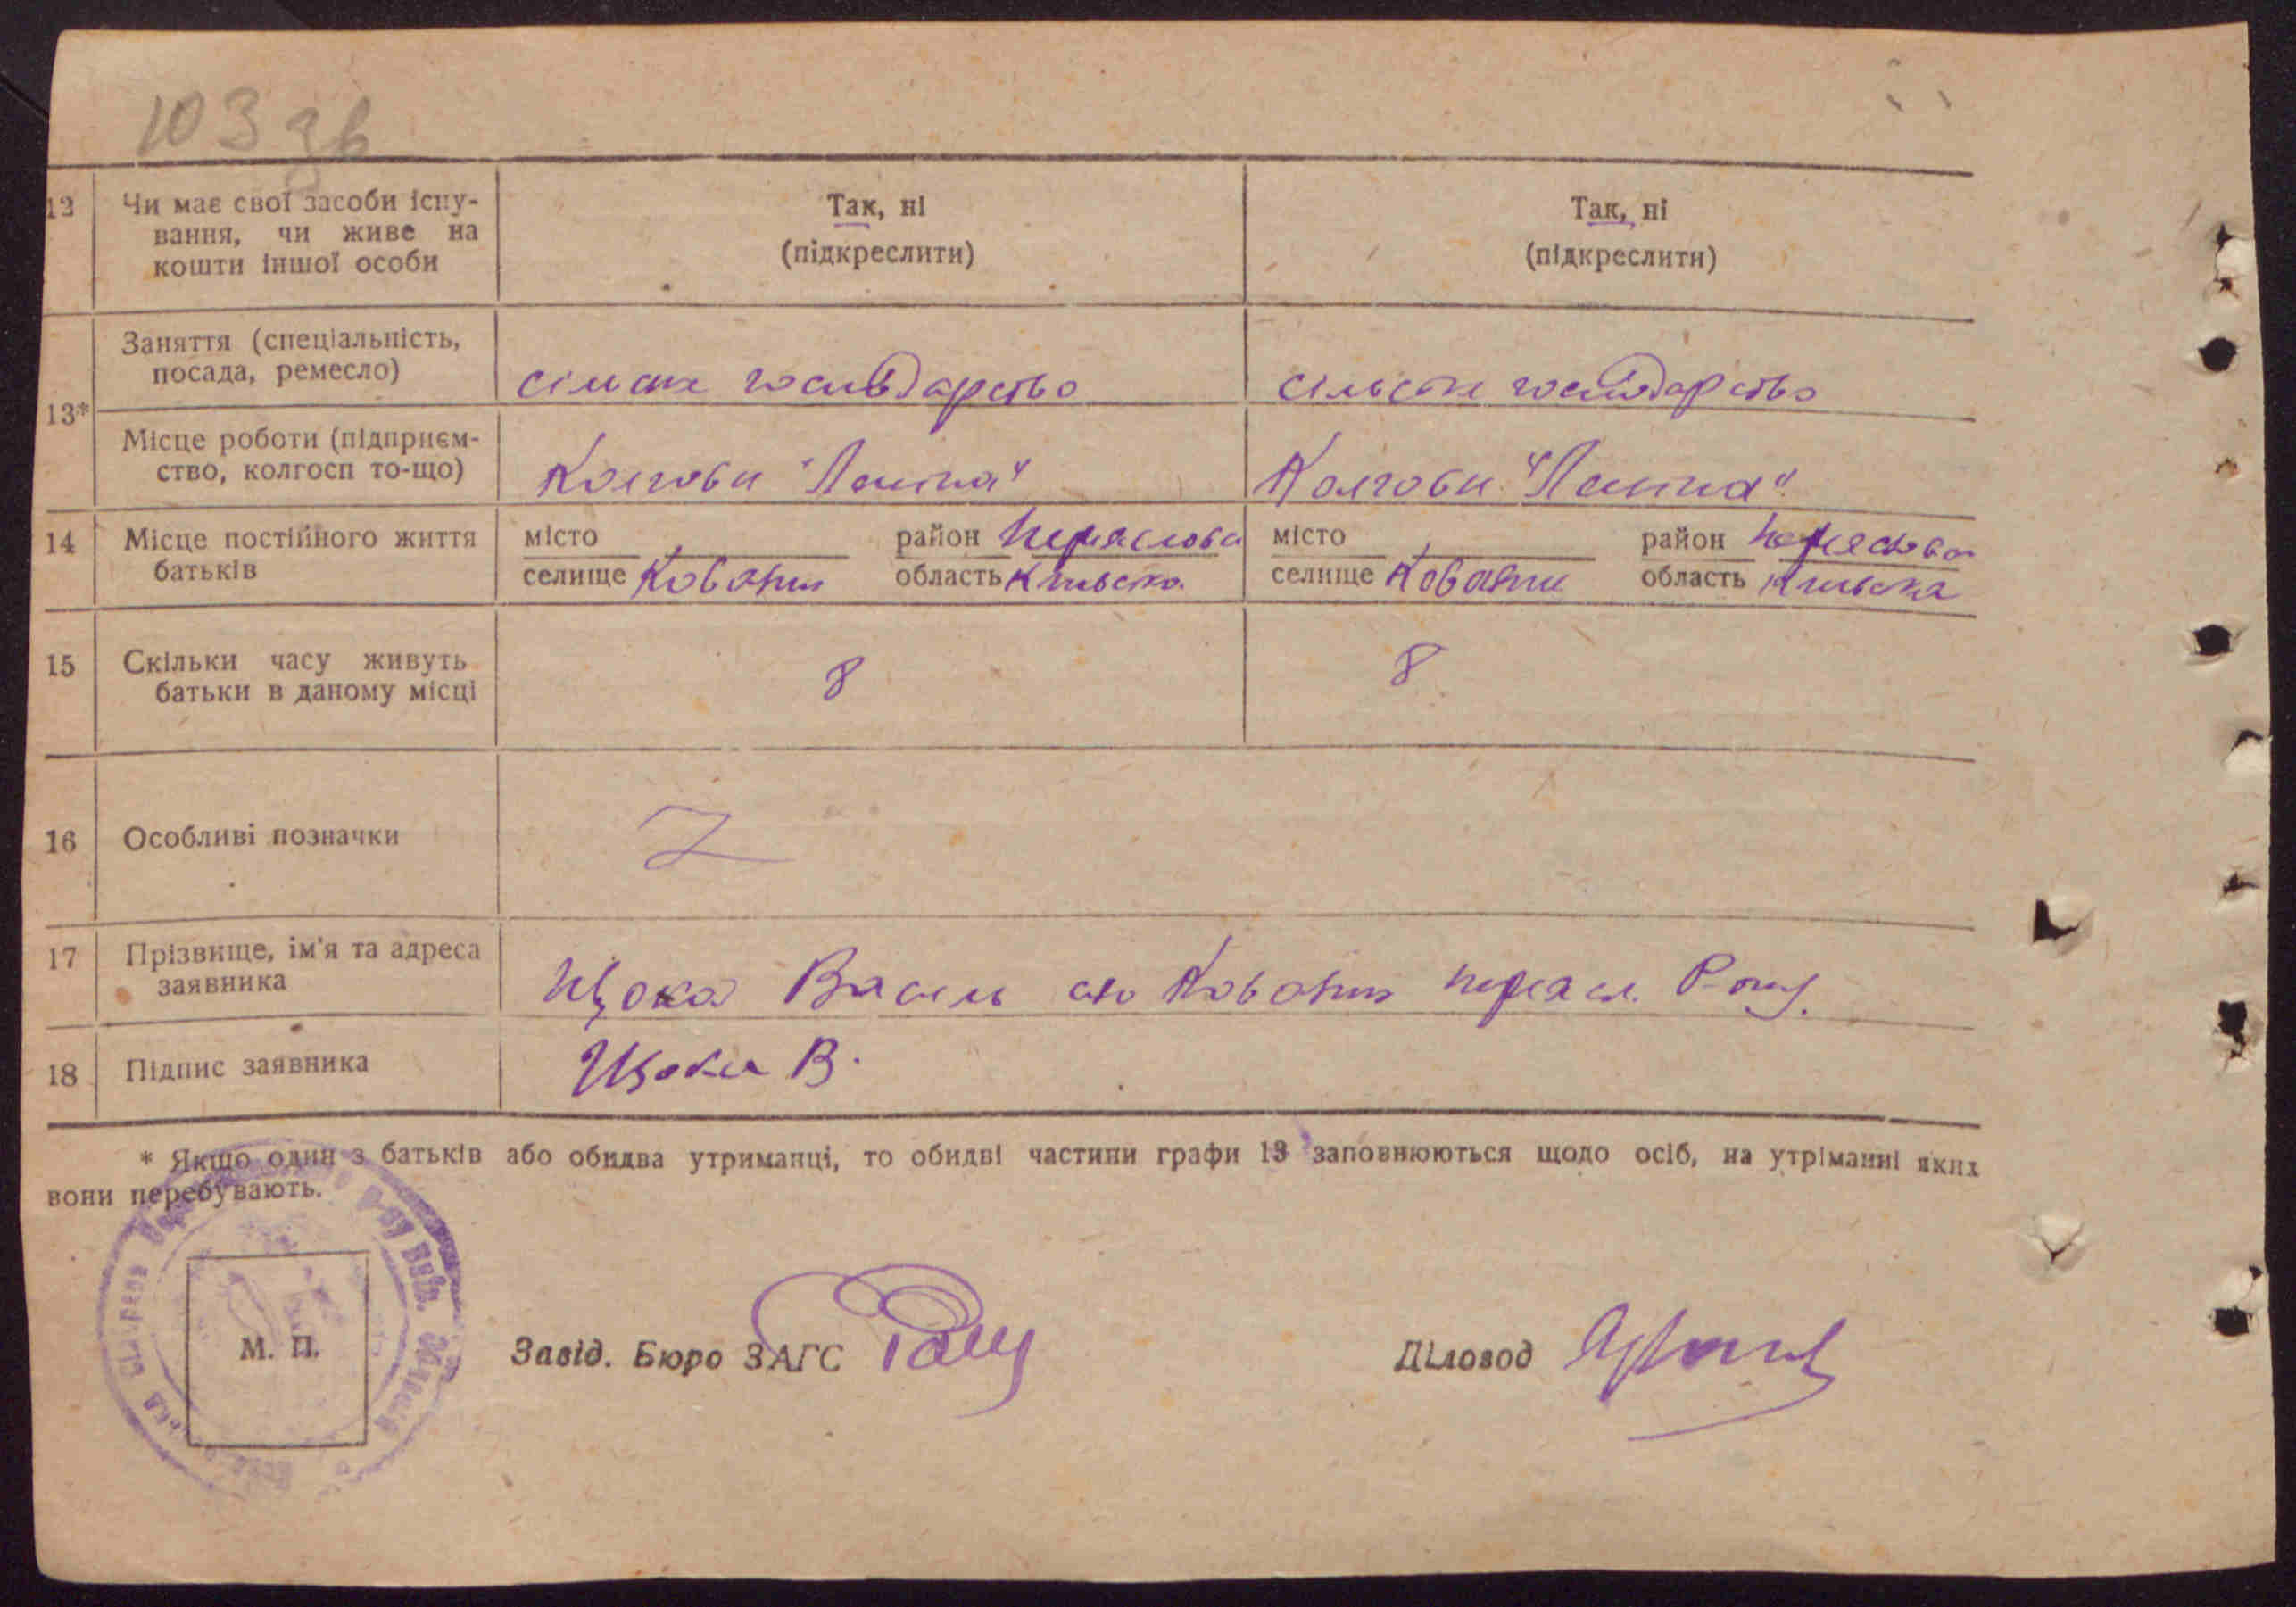 103 зв
12 Чи має свої засоби існу-
вання, чи живе на
кошти іншої особи
Так, ні
(підкреслити)
Так, ні
(підкреслити)
13*
Заняття (спеціальність,
посада, ремесло)
сільське господарство
сільське господарство
Місце роботи (підприєм-
ство, колгосп то-що)
Колгосп
Колгосп
14 Місце постійного життя
батьків
місто район Переяслова
селище Ковалин область Київська
місто район Переяслова
селище Ковалин область Київська
15 Скільки часу живуть
батьки в даному місці
8
8
16 Особливі позначки
Z
17 Прізвище, ім'я та адреса
заявника
Щока Василь село Ковалин переясл. Р-ну.
18 Підпис заявника
Щока В.
* Якщо один з батьків або обидва утриманці, то обидві частини графи 13 заповнюються щодо осіб, на утріманні яких
вони перебувають.
М. П.
Завід. Бюро ЗАГС
Діловод